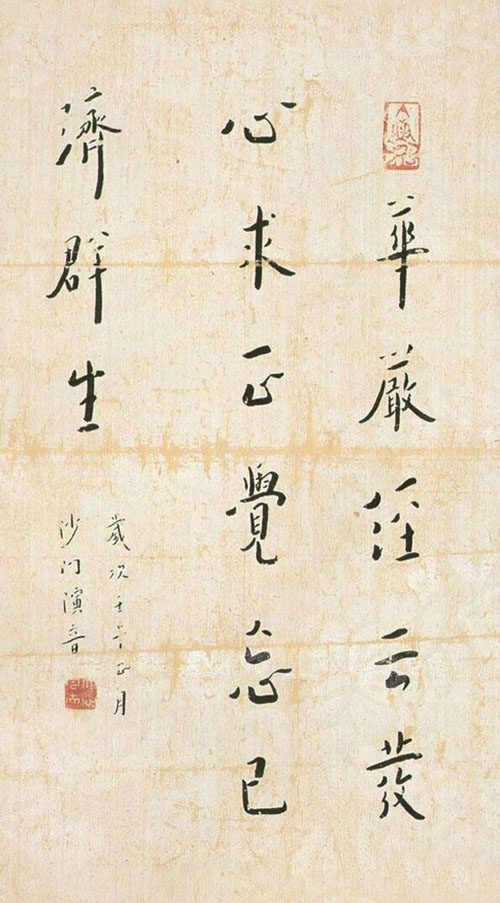 華嚴經云發
心求正覺忘己
濟群生
歲次壬午正月
沙门演音